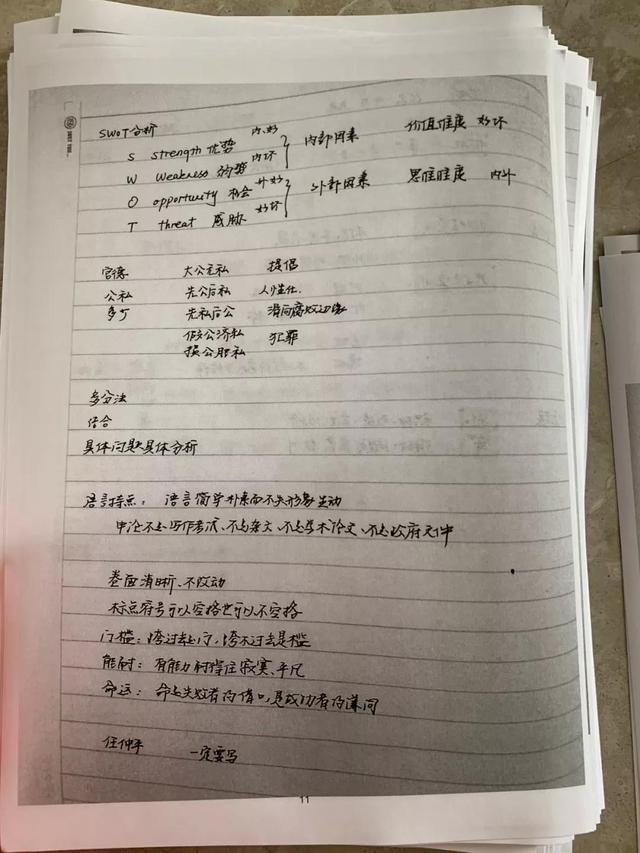 SWOT分析
S strength 优势 内好
W weakness 弱势 内坏 内部因素 价值维度 好坏
O opportunity 机会 外好
T threat 威胁 外部因素 思维维度 内外
官德 大公无私 提倡
公私 先公后私 人性化
多少 先私后公 滑向腐败边缘
假公济私 犯罪
损公肥私
多分法
结合
具体问题具体分析
语言特点: 语言简单朴素而不失形象生动
申论不是写作考试、不是杂文、不是学术论文、不是政府文件
卷面清晰、不改动
标点符号可以空格也可以不空格
门槛: 跨过去是门, 跨不过去是槛
能耐: 有能力耐得住寂寞、平凡
命运: 命是失败者的借口, 是成功者的谦词
任仲平 一定要写
11